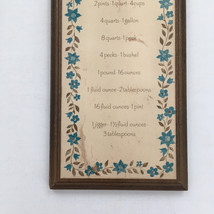 2 pints·1 quart·4 cups
4 quarts·1 gallon
8 quarts·1 peck
4 pecks·1 bushel
1 pound·16 ounces
1 fluid ounce·2 tablespoons
16 fluid ounces·1 pint
1 jigger·1½ fluid ounces
3 tablespoons